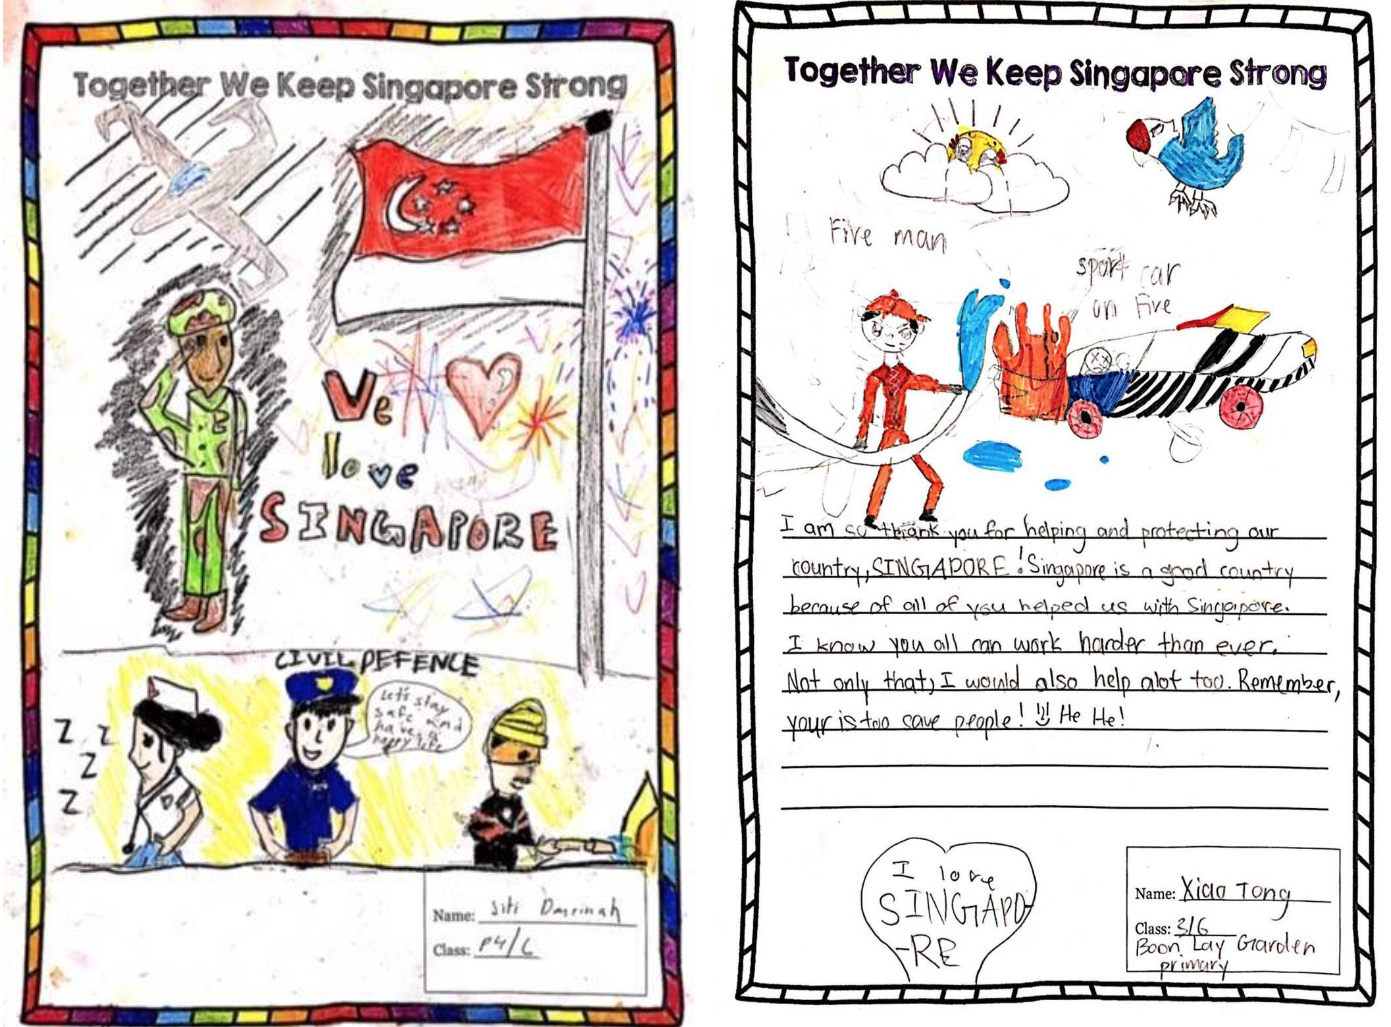 Together We Keep Singapore Strong
We
love
SINGAPORE
CIVIL DEFENCE
Z
Z
Z
Z
Let's stay
safe and
have a
happy life
Name: Siti
Class: P4/6
Together We Keep Singapore Strong
Fire man
sport car
on fire
I am so thank you for helping and protecting our
country, SINGAPORE! Singapore is a good country
because of all of you helped us with Singapore.
I know you all can work harder than ever.
Not only that, I would also help alot too. Remember,
your is too save people! He He!
I love
SINGAPO-
-RE
Name: Xiao Tong
Class: 3/6
Boon Lay Garden
primary